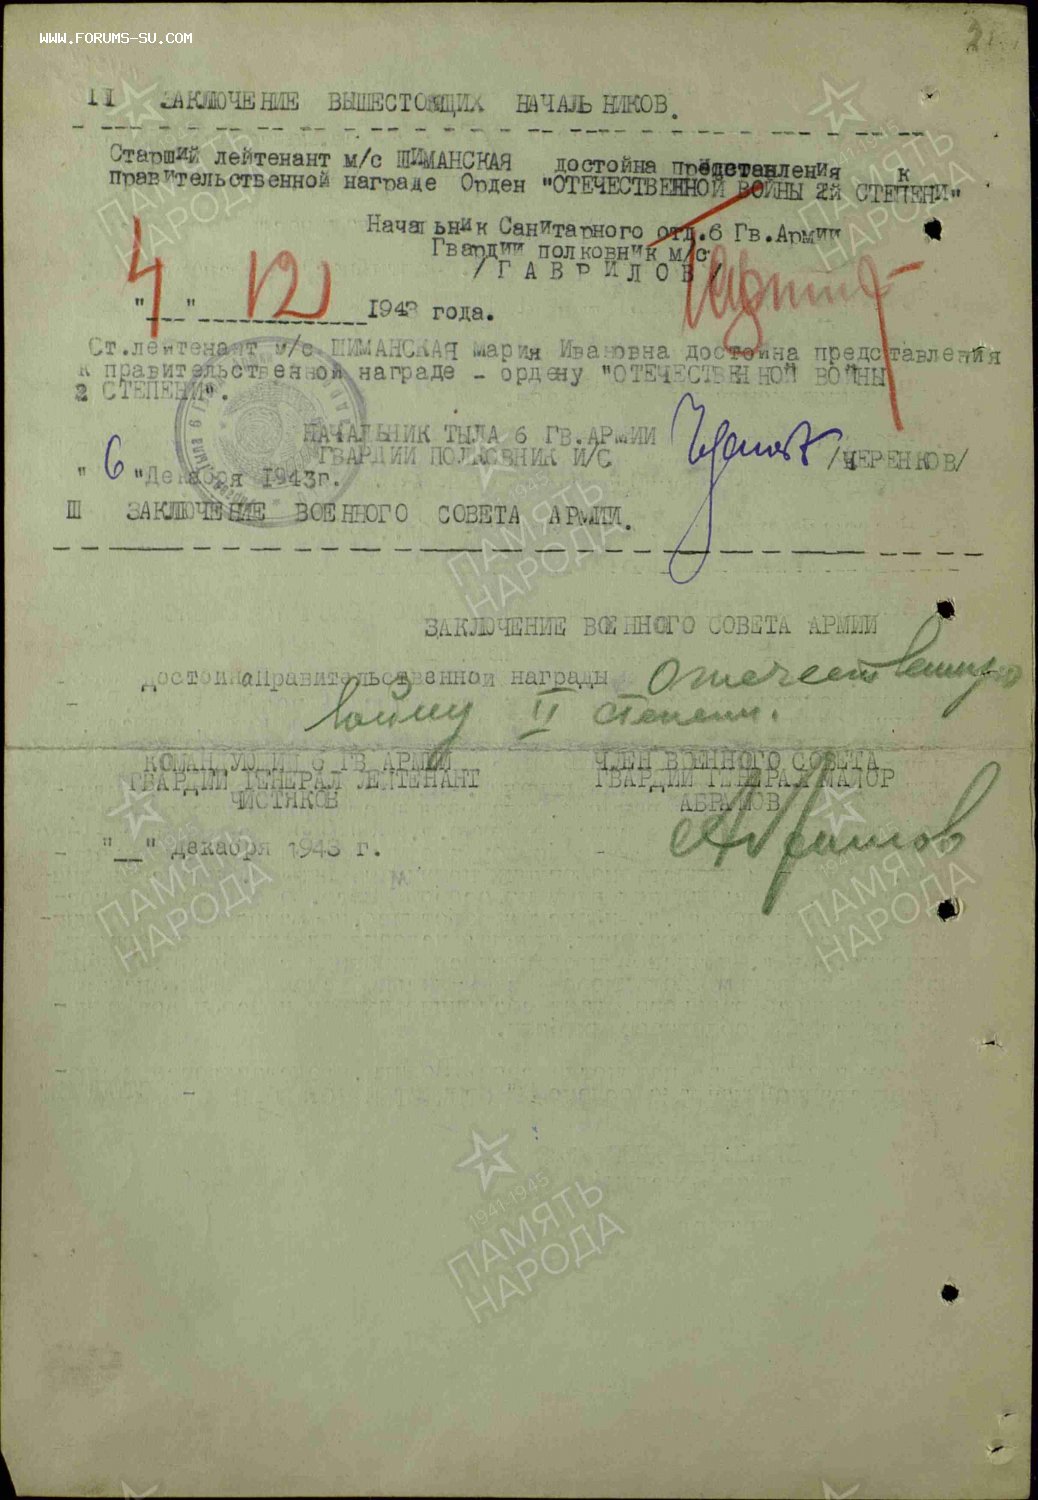 WWW.FORUMS-SU.COM
II ЗАКЛЮЧЕНИЕ ВЫШЕСТОЯЩИХ НАЧАЛЬНИКОВ.
Старший лейтенант м/с ШИМАНСКАЯ достойна представления к
правительственной награде Орден "ОТЕЧЕСТВЕННОЙ ВОЙНЫ 2й СТЕПЕНИ"
Начальник Санитарного отд.6 Гв.Армии
Гвардии полковник м/с
/ГАВРИЛОВ/
"4" 12 1943 года.
Ст.лейтенант м/с ШИМАНСКАЯ Мария Ивановна достойна представления
к правительственной награде - ордену "ОТЕЧЕСТВЕННОЙ ВОЙНЫ
2 СТЕПЕНИ".
НАЧАЛЬНИК ТЫЛА 6 ГВ.АРМИИ
ГВАРДИИ ПОЛКОВНИК И/С /ЧЕРЕНКОВ/
"6" Декабря 1943г.
III ЗАКЛЮЧЕНИЕ ВОЕННОГО СОВЕТА АРМИИ.
ЗАКЛЮЧЕНИЕ ВОЕННОГО СОВЕТА АРМИИ
достойна Правительственной награды Отечественную
войну II степени.
КОМАНДУЮЩИЙ 6 ГВ АРМИИ ЧЛЕН ВОЕННОГО СОВЕТА
ГВАРДИИ ГЕНЕРАЛ ЛЕЙТЕНАНТ ГВАРДИИ ГЕНЕРАЛ МАЙОР
ЧИСТЯКОВ АБРАМОВ
Абрамов
"__" декабря 1943 г.
1941-1945
ПАМЯТЬ
НАРОДА